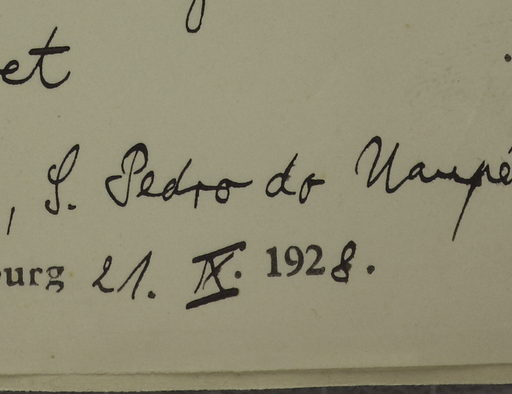 et
, S. Pedro do Uaupé
burg 21. IX. 1928.